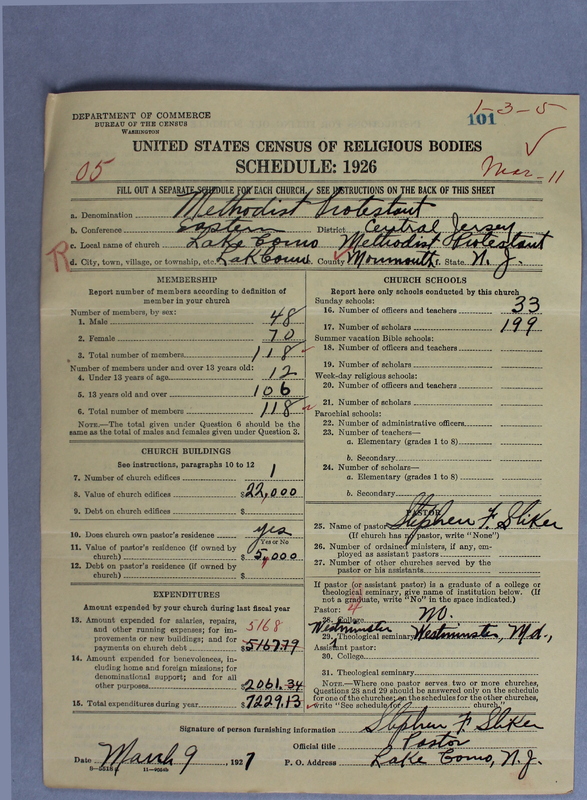 1-3-5
101
DEPARTMENT OF COMMERCE
BUREAU OF THE CENSUS
WASHINGTON
UNITED STATES CENSUS OF RELIGIOUS BODIES
SCHEDULE: 1926
05
Mar-11
FILL OUT A SEPARATE SCHEDULE FOR EACH CHURCH. SEE INSTRUCTIONS ON THE BACK OF THIS SHEET
a. Denomination Methodist Protestant
b. Conference Eastern District Central Jersey
c. Local name of church Lake Como Methodist Protestant
R
d. City, town, village, or township, etc. Lake Como e. County Monmouth f. State N. J.
MEMBERSHIP
Report number of members according to definition of
member in your church
Number of members, by sex:
1. Male 48
2. Female 70
3. Total number of members 118
Number of members under and over 13 years old:
4. Under 13 years of age 12
5. 13 years old and over 106
6. Total number of members 118
NOTE.—The total given under Question 6 should be
same as the total of males and females given under Question 3.
CHURCH BUILDINGS
See instructions, paragraphs 10 to 12
7. Number of church edifices 1
8. Value of church edifices $22,000
9. Debt on church edifices $
10. Does church own pastor's residence yes
Yes or No
11. Value of pastor's residence (if owned by
church) $5,000
12. Debt on pastor's residence (if owned by
church) $
EXPENDITURES
Amount expended by your church during last fiscal year
13. Amount expended for salaries, repairs,
and other running expenses; for im-
provements or new buildings; and for
payments on church debt $5167.79
5168
14. Amount expended for benevolences, in-
cluding home and foreign missions; for
denominational support; and for all
other purposes 2061.34
15. Total expenditures during year $7229.13
CHURCH SCHOOLS
Report here only schools conducted by this church
Sunday schools:
16. Number of officers and teachers 33
17. Number of scholars 199
Summer vacation Bible schools:
18. Number of officers and teachers
19. Number of scholars
Week-day religious schools:
20. Number of officers and teachers
21. Number of scholars
Parochial schools:
22. Number of administrative officers
23. Number of teachers—
a. Elementary (grades 1 to 8)
b. Secondary
24. Number of scholars—
a. Elementary (grades 1 to 8)
b. Secondary
PASTOR
25. Name of pastor Stephen F. Sliker
(If church has no pastor, write "None")
26. Number of ordained ministers, if any, em-
ployed as assistant pastors
27. Number of other churches served by the
pastor or his assistants
If pastor (or assistant pastor) is a graduate of a college or
theological seminary, give name of institution below. (If
not a graduate, write "No" in the space indicated.)
Pastor: 4
28. College No.
Westminster
29. Theological seminary Westminster, Md.,
Assistant pastor: 1
30. College
31. Theological seminary
NOTE.—Where one pastor serves two or more churches,
Questions 28 and 29 should be answered only on the schedule
for one of the churches; on the schedules for the other churches,
write "See schedule for church."
Signature of person furnishing information Stephen F. Sliker
Official title Pastor
Date March 9, 1927 P. O. Address Lake Como, N. J.